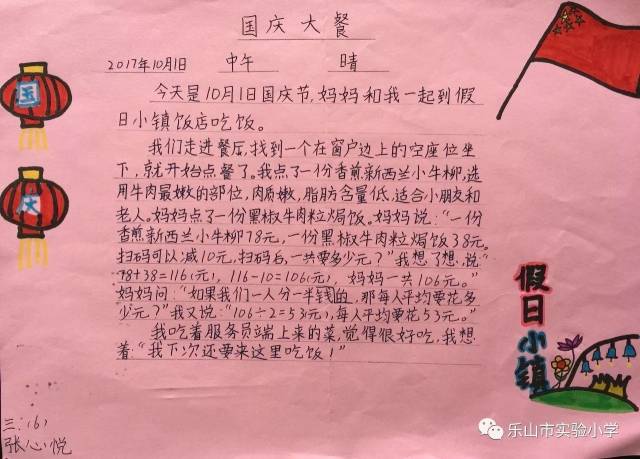 国庆大餐
2017年10月1日 中午 晴
今天是10月1日国庆节,妈妈和我一起到假
日小镇饭店吃饭。
我们走进餐厅,找到一个在窗户边上的空座位坐
下,就开始点餐了。我点了一份香煎新西兰小牛柳,选
用牛肉最嫩的部位,肉质嫩,脂肪含量低,适合小朋友和
老人。妈妈点了一份黑椒牛肉粒焗饭。妈妈说:“一份
香煎新西兰小牛柳78元,一份黑椒牛肉粒焗饭38元。
扫码可以减10元,扫码后,一共要多少元?”我想了想,说:“
78+38=116(元),116-10=106(元),妈妈一共106元。”
妈妈问:“如果我们一人分一半钱的,那每人平均要花多
少元?”我又说:“106÷2=53(元),每人平均要花53元。”
我吃着服务员端上来的菜,觉得很好吃,我想
着:“我下次还要来这里吃饭!”
国
大
假日小镇
三.(6)
张心悦
乐山市实验小学